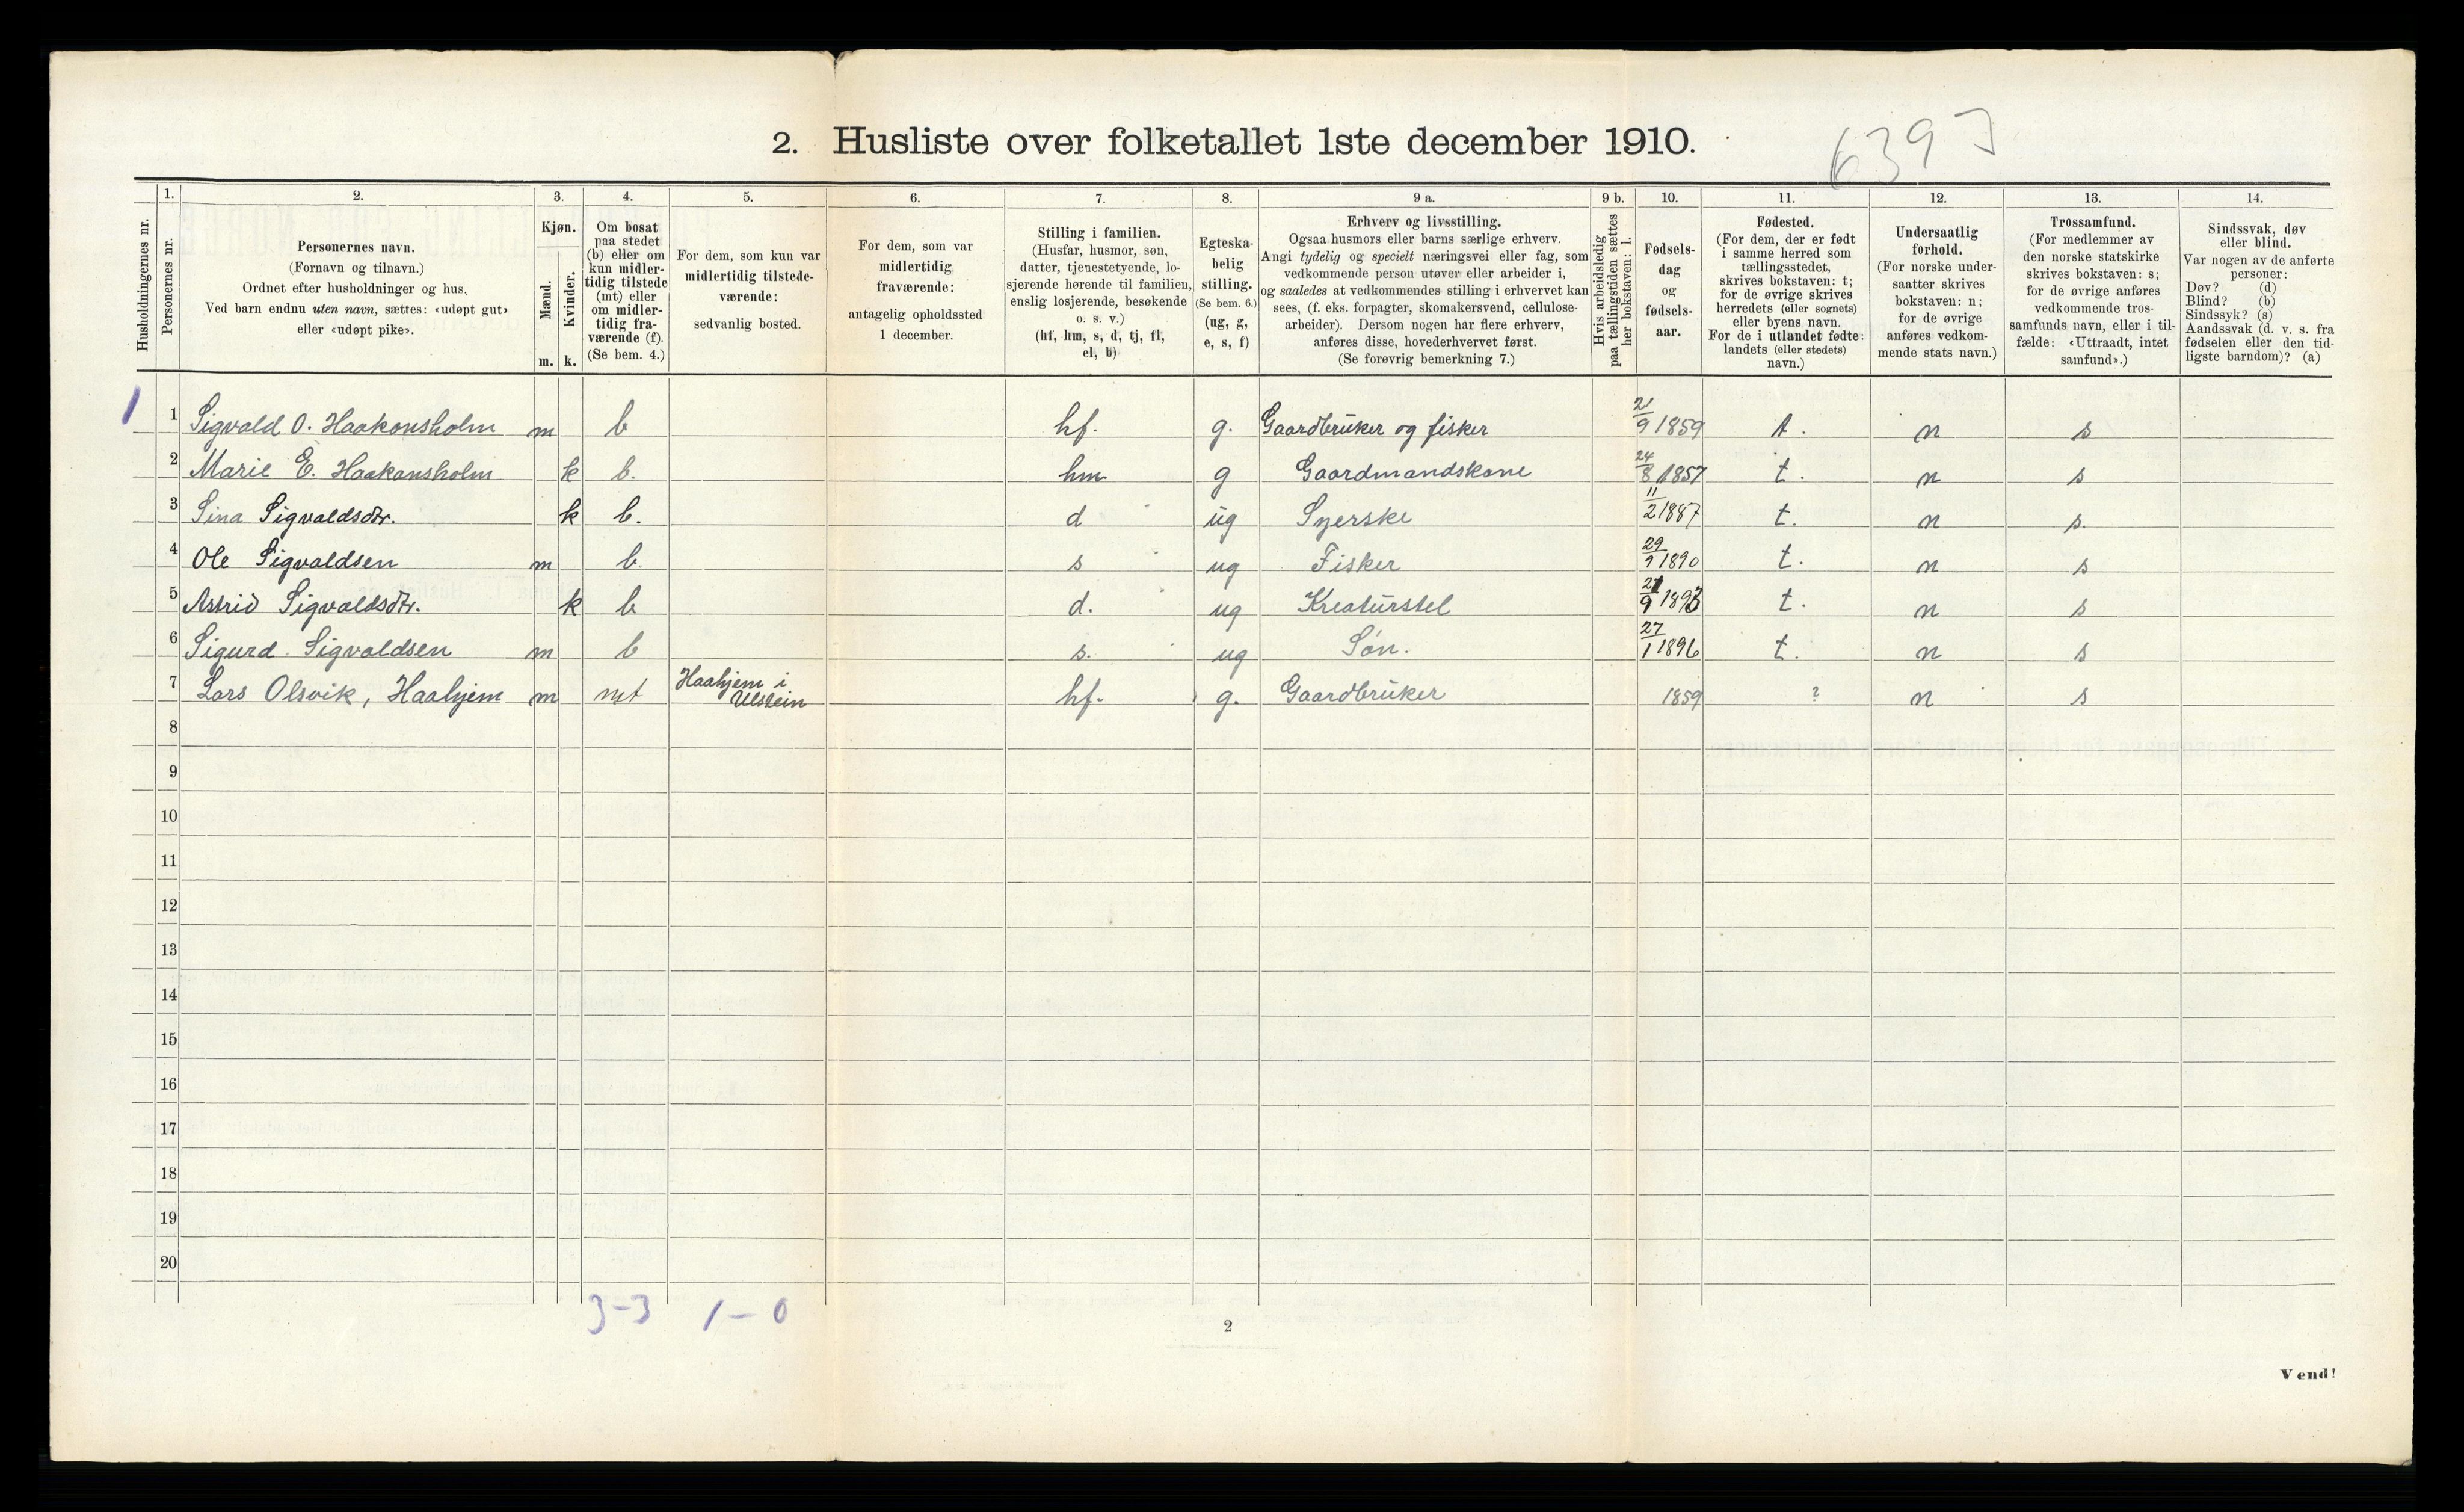 2. Husliste over folketallet 1ste december 1910.
6397
Husholdningernes nr.
1.
Personernes nr.
2.
Personernes navn.
(Fornavn og tilnavn.)
Ordnet efter husholdninger og hus.
Ved barn endnu uten navn, sættes: «udøpt gut»
eller «udøpt pike».
3.
Kjøn.
Mænd.
Kvinder.
m. k.
4.
Om bosat
paa stedet
(b) eller om
kun midler-
tidig tilstede
(mt) eller
om midler-
tidig fra-
værende (f).
(Se bem. 4.)
5.
For dem, som kun var
midlertidig tilstede-
værende:
sedvanlig bosted.
6.
For dem, som var
midlertidig
fraværende:
antagelig opholdssted
1 december.
7.
Stilling i familien.
(Husfar, husmor, søn,
datter, tjenestetyende, lo-
sjerende hørende til familien,
enslig losjerende, besøkende
o. s. v.)
(hf, hm, s, d, tj, fl,
el, b)
8.
Egteska-
belig
stilling.
(Se bem. 6.)
(ug, g,
e, s, f)
9 a.
Erhverv og livsstilling.
Ogsaa husmors eller barns særlige erhverv.
Angi tydelig og specielt næringsvei eller fag, som
vedkommende person utøver eller arbeider i,
og saaledes at vedkommendes stilling i erhvervet kan
sees, (f. eks. forpagter, skomakersvend, cellulose-
arbeider). Dersom nogen har flere erhverv,
anføres disse, hovederhvervet først.
(Se forøvrig bemerkning 7.)
9 b.
Hvis arbeidsledig
paa tællingstiden sættes
her bokstaven: l.
10.
Fødsels-
dag
og
fødsels-
aar.
11.
Fødested.
(For dem, der er født
i samme herred som
tællingsstedet,
skrives bokstaven: t;
for de øvrige skrives
herredets (eller sognets)
eller byens navn.
For de i utlandet fødte:
landets (eller stedets)
navn.)
12.
Undersaatlig
forhold.
(For norske under-
saatter skrives
bokstaven: n;
for de øvrige
anføres vedkom-
mende stats navn.)
13.
Trossamfund.
(For medlemmer av
den norske statskirke
skrives bokstaven: s;
for de øvrige anføres
vedkommende tros-
samfunds navn, eller i til-
fælde: «Uttraadt, intet
samfund».)
14.
Sindssvak, døv
eller blind.
Var nogen av de anførte
personer:
Døv? (d)
Blind? (b)
Sindssyk? (s)
Aandssvak (d. v. s. fra
fødselen eller den tid-
ligste barndom)? (a)
1 1 Sigvald O. Haakonsholm m b hf. g. Gaardbruker og fisker 21/9 1859 t. n s
2 Marie E. Haakonsholm k b. hm g Gaardmandskone 24/8 1857 t. n s
3 Sina Sigvaldsdtr. k b. d ug Syerske 11/2 1887 t. n s.
4 Ole Sigvaldsen m b. s ug Fisker 29/9 1890 t. n s
5 Astrid Sigvaldsdtr. k b d. ug Kreaturstel 21/9 1893 t. n s
6 Sigurd Sigvaldsen m b s. ug Søn. 27/1 1896 t. n s
7 Lars Olsvik, Haahjem m mt Haahjem i Ulstein hf. g. Gaardbruker 1859 ? n s
8
9
10
11
12
13
14
15
16
17
18
19
20
3-3 1-0
2
Vend!